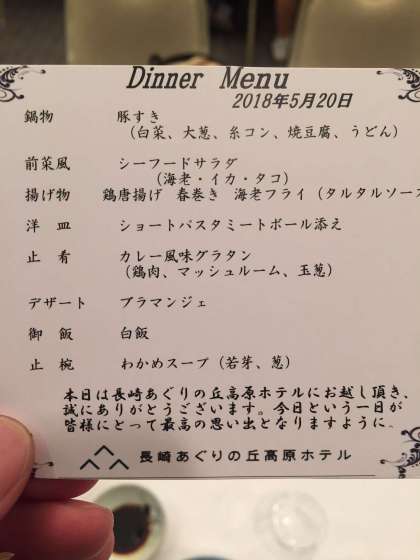 Dinner Menu
2018年5月20日
鍋物 豚すき
(白菜、大葱、糸コン、焼豆腐、うどん)
前菜風 シーフードサラダ
(海老・イカ・タコ)
揚げ物 鶏唐揚げ 春巻き 海老フライ(タルタルソース
洋皿 ショートパスタミートボール添え
止肴 カレー風味グラタン
(鶏肉、マッシュルーム、玉葱)
デザート ブラマンジェ
御飯 白飯
止椀 わかめスープ(若芽、葱)
本日は長崎あぐりの丘高原ホテルにお越し頂き、
誠にありがとうございます。今日という一日が
皆様にとって最高の思い出となりますように。
長崎あぐりの丘高原ホテル